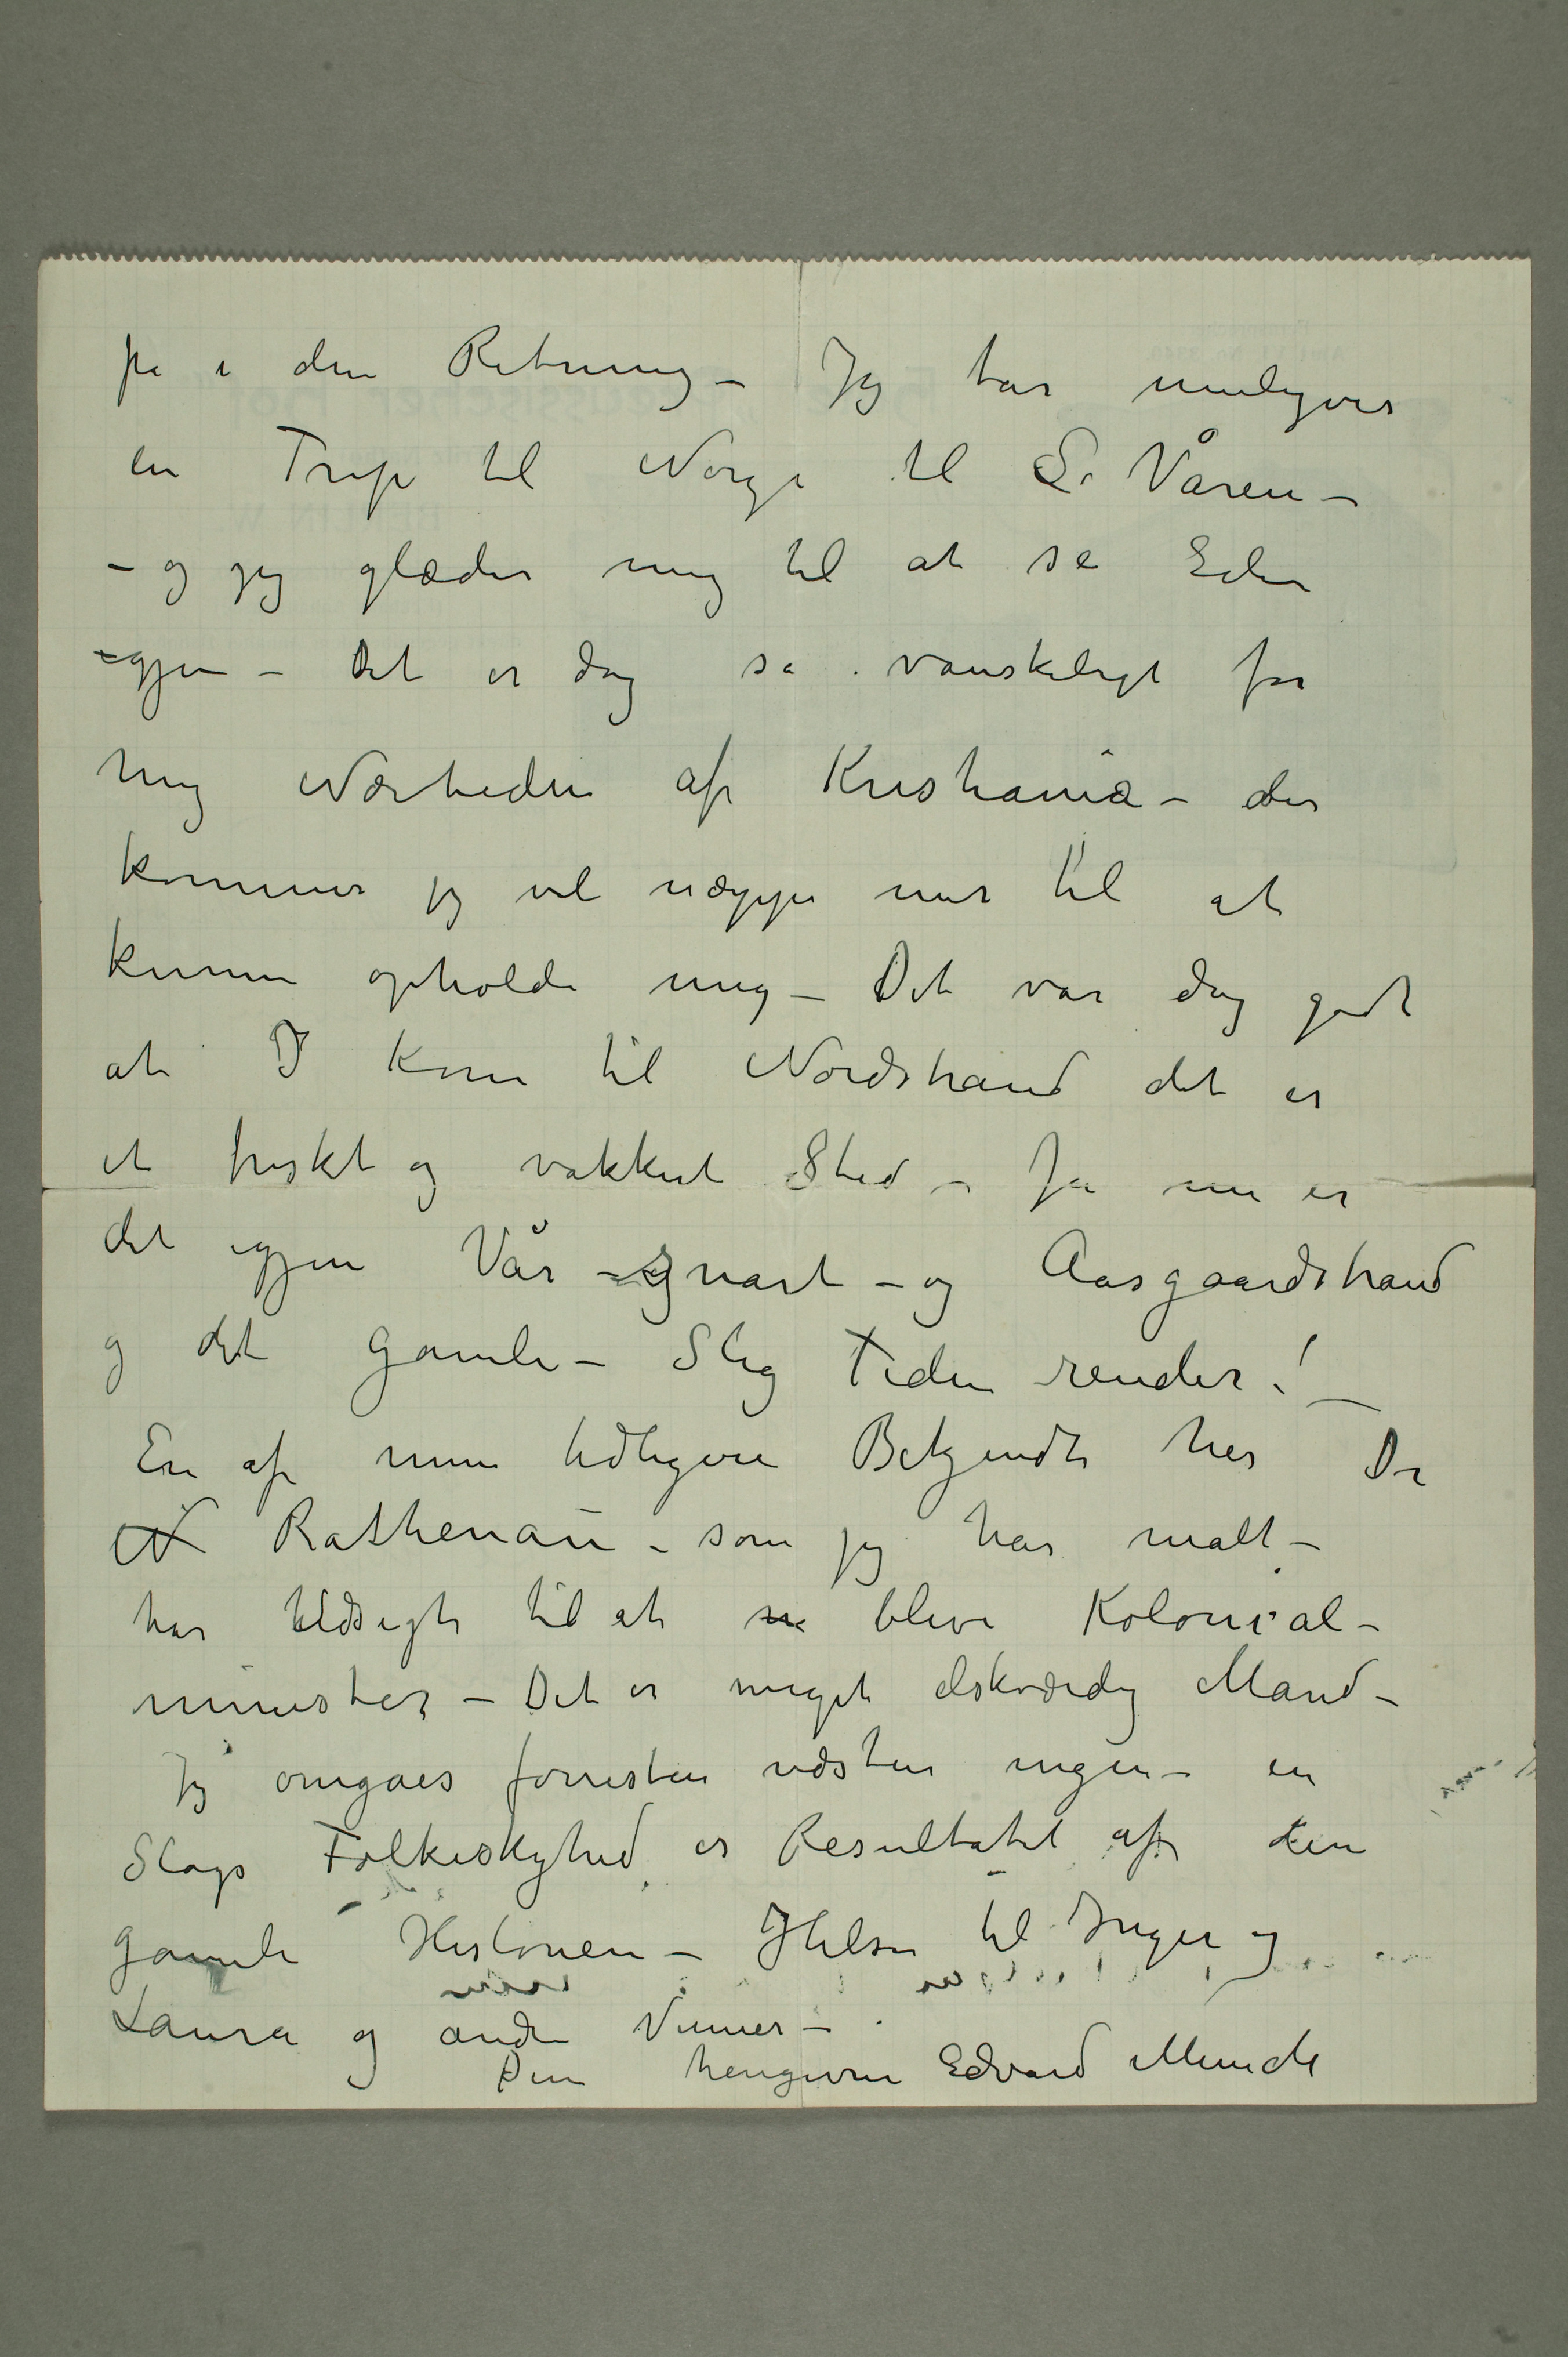 på i den Retning – Jeg tar muligvis
en Trip til Norge til S Våren –
– og jeg glæder mig til at se Eder
igjen – Det er dog så vanskeligt for
mig Nærheden af Kristiania – der
kommer jeg vel næppe mer til at
kunne opholde mig – Det var dog godt
at I kom til Nordstrand det er
et friskt og vakkert Sted – Ja nu er
det igjen Vår – snart – og Aasgaardstrand
og det gamle – Slig Tiden render! –
En af mine tidligere Bekjendte her Dr
N Rathenau – som jeg har malt –
har Udsigt til at bleve Kolonial-
minister – Det er meget elskværdig Mand –
Jeg omgåes forresten næsten ingen – en
Slags Folkeskyhed er Resultatet af den
gamle Historien – Hilsen til Inger og
Laura og andre Venner –
Din hengivne Edvard Munch